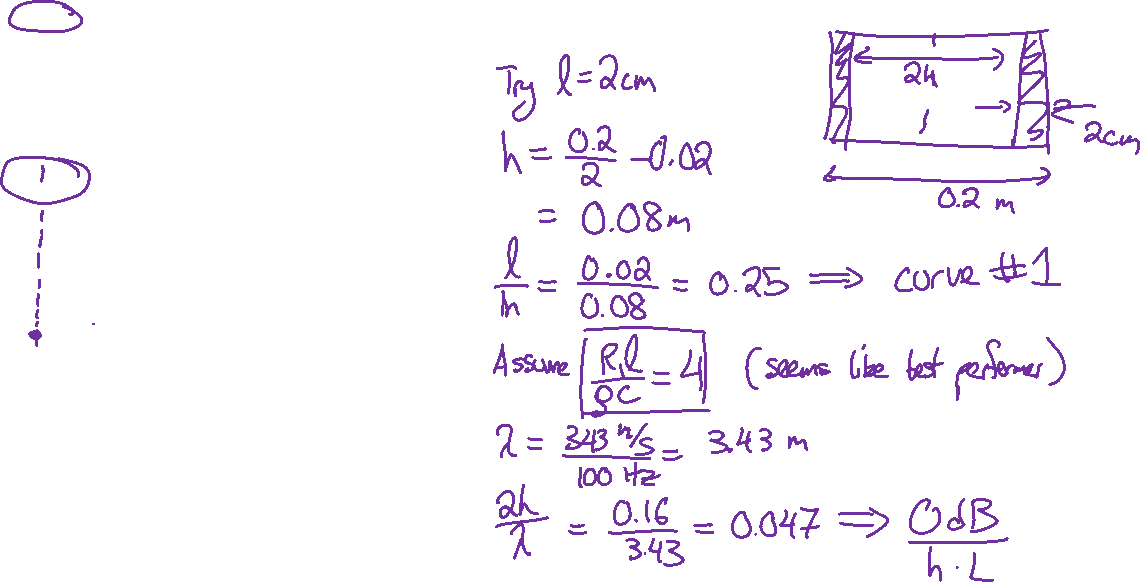 Try l = 2cm
2h
2cm
0.2 m
h = 0.2/2 - 0.02
= 0.08m
l/h = 0.02/0.08 = 0.25 ⟹ curve #1
Assume R₁l/ρc = 4 (seems like best performer)
λ = 343 m/s / 100 Hz = 3.43 m
2h/λ = 0.16/3.43 = 0.047 ⟹ 0dB/h·L